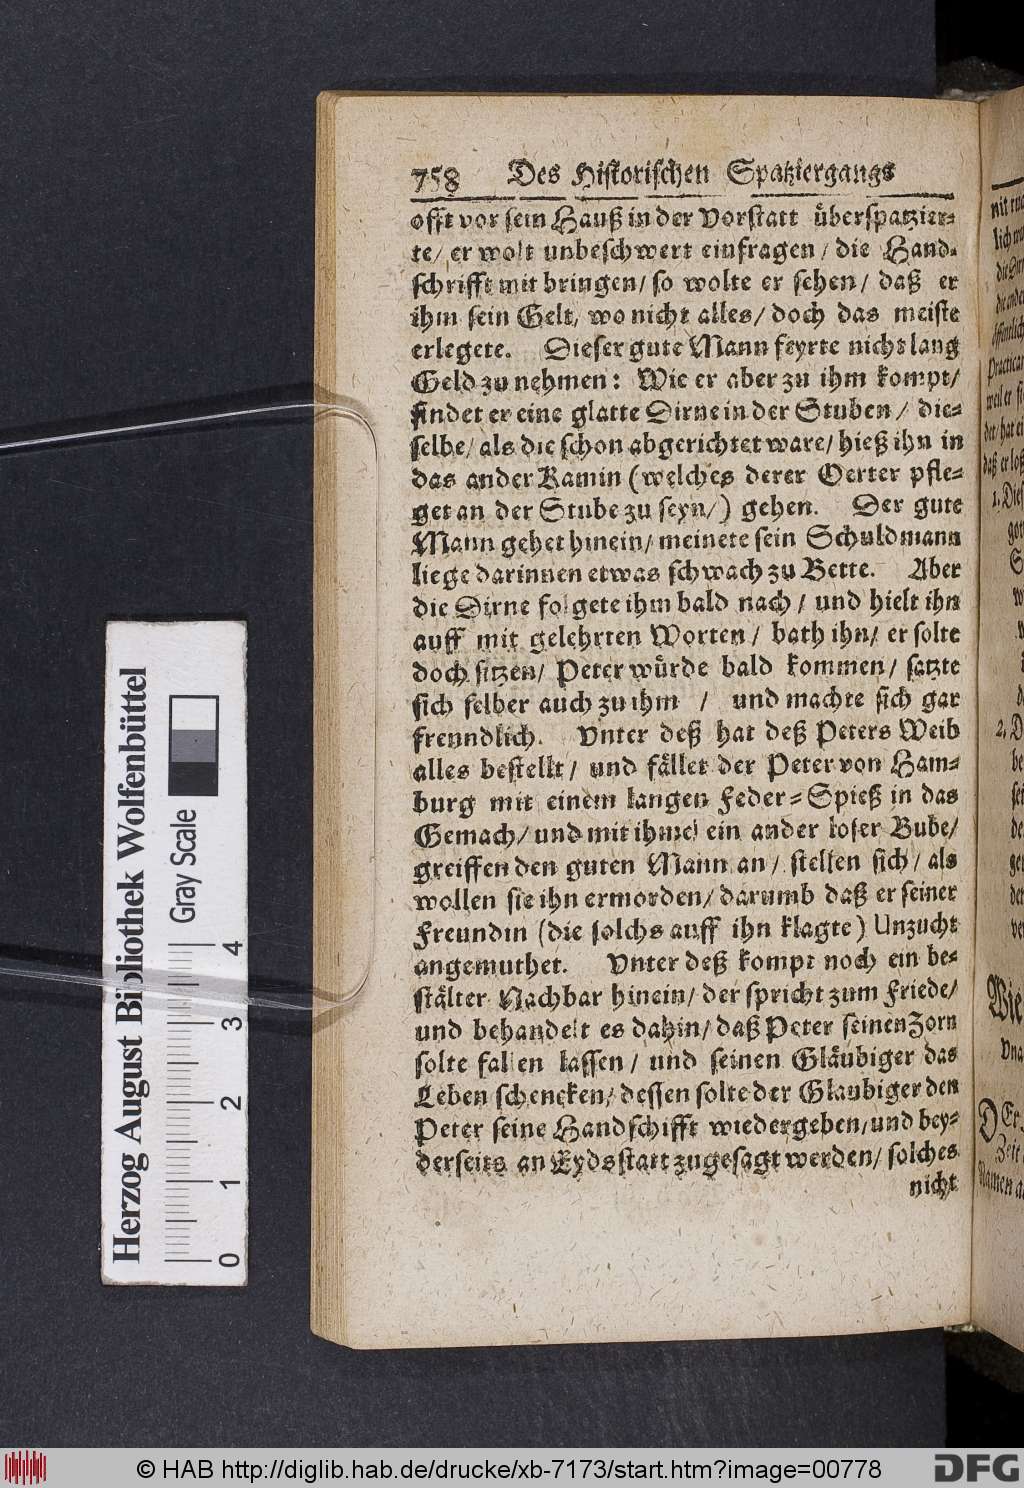 758 Des Historischen Spatziergangs
offt vor sein Hauß in der Vorstatt überspatzier-
te/ er wolt unbeschwert einfragen / die Hand-
schrifft mit bringen/ so wolte er sehen/ daß er
ihm sein Gelt, wo nicht alles/ doch das meiste
erlegete. Dieser gute Mann feyrte nicht lang
Geld zu nehmen: Wie er aber zu ihm kompt/
findet er eine glatte Dirne in der Stuben / die-
selbe/ als die schon abgerichtet ware/ hieß ihn in
das ander Kamin (welches derer Oerter pfle-
get an der Stube zu seyn/) gehen. Der gute
Mann gehet hinein/ meinete sein Schuldmann
liege darinnen etwas schwach zu Bette. Aber
die Dirne folgete ihm bald nach / und hielt ihn
auff mit gelehrten Worten / bath ihn/ er solte
doch sitzen/ Peter würde bald kommen/ satzte
sich selber auch zu ihm / und machte sich gar
freundlich. Vnter deß hat deß Peters Weib
alles bestellt / und fället der Peter von Ham-
burg mit einem langen Feder-Spieß in das
Gemach/ und mit ihme ein ander loser Bube/
greiffen den guten Mann an / stellen sich / als
wollen sie ihn ermorden/ darumb daß er seiner
Freundin (die solchs auff ihn klagte) Unzucht
angemuthet. Vnter deß kompt noch ein be-
stälter Nachbar hinein/ der spricht zum Friede/
und behandelt es dahin/ daß Peter seinen Zorn
solte fallen lassen / und seinen Gläubiger das
Leben schencken/ dessen solte der Glaubiger den
Peter seine Handschifft wiedergeben/ und bey-
derseits an Eydsstatt zugesagt werden/ solches
nicht
Herzog August Bibliothek Wolfenbüttel
Gray Scale
0 1 2 3 4
© HAB http://diglib.hab.de/drucke/xb-7173/start.htm?image=00778
DFG